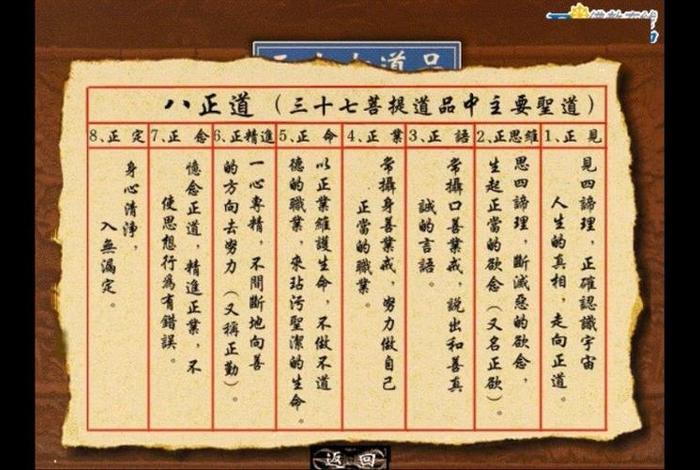 八正道（三十七菩提道品中主要聖道）
1、正 見
見四諦理，正確認識宇宙
人生的真相，走向正道。
2、正思維
思四諦理，斷滅惡的欲念，
生起正當的欲念（又名正欲）。
3、正 語
常攝口善業戒，說出和善真
誠的言語。
4、正 業
常攝身善業戒，努力做自己
正當的職業。
5、正 命
以正業維護生命，不做不道
德的職業，來玷污聖潔的生命。
6、正精進
一心專精，不間斷地向善
的方向去努力（又稱正勤）。
7、正 念
憶念正道，精進正業，不
使思想行為有錯誤。
8、正 定
身心清淨，
入無漏定。
返 回